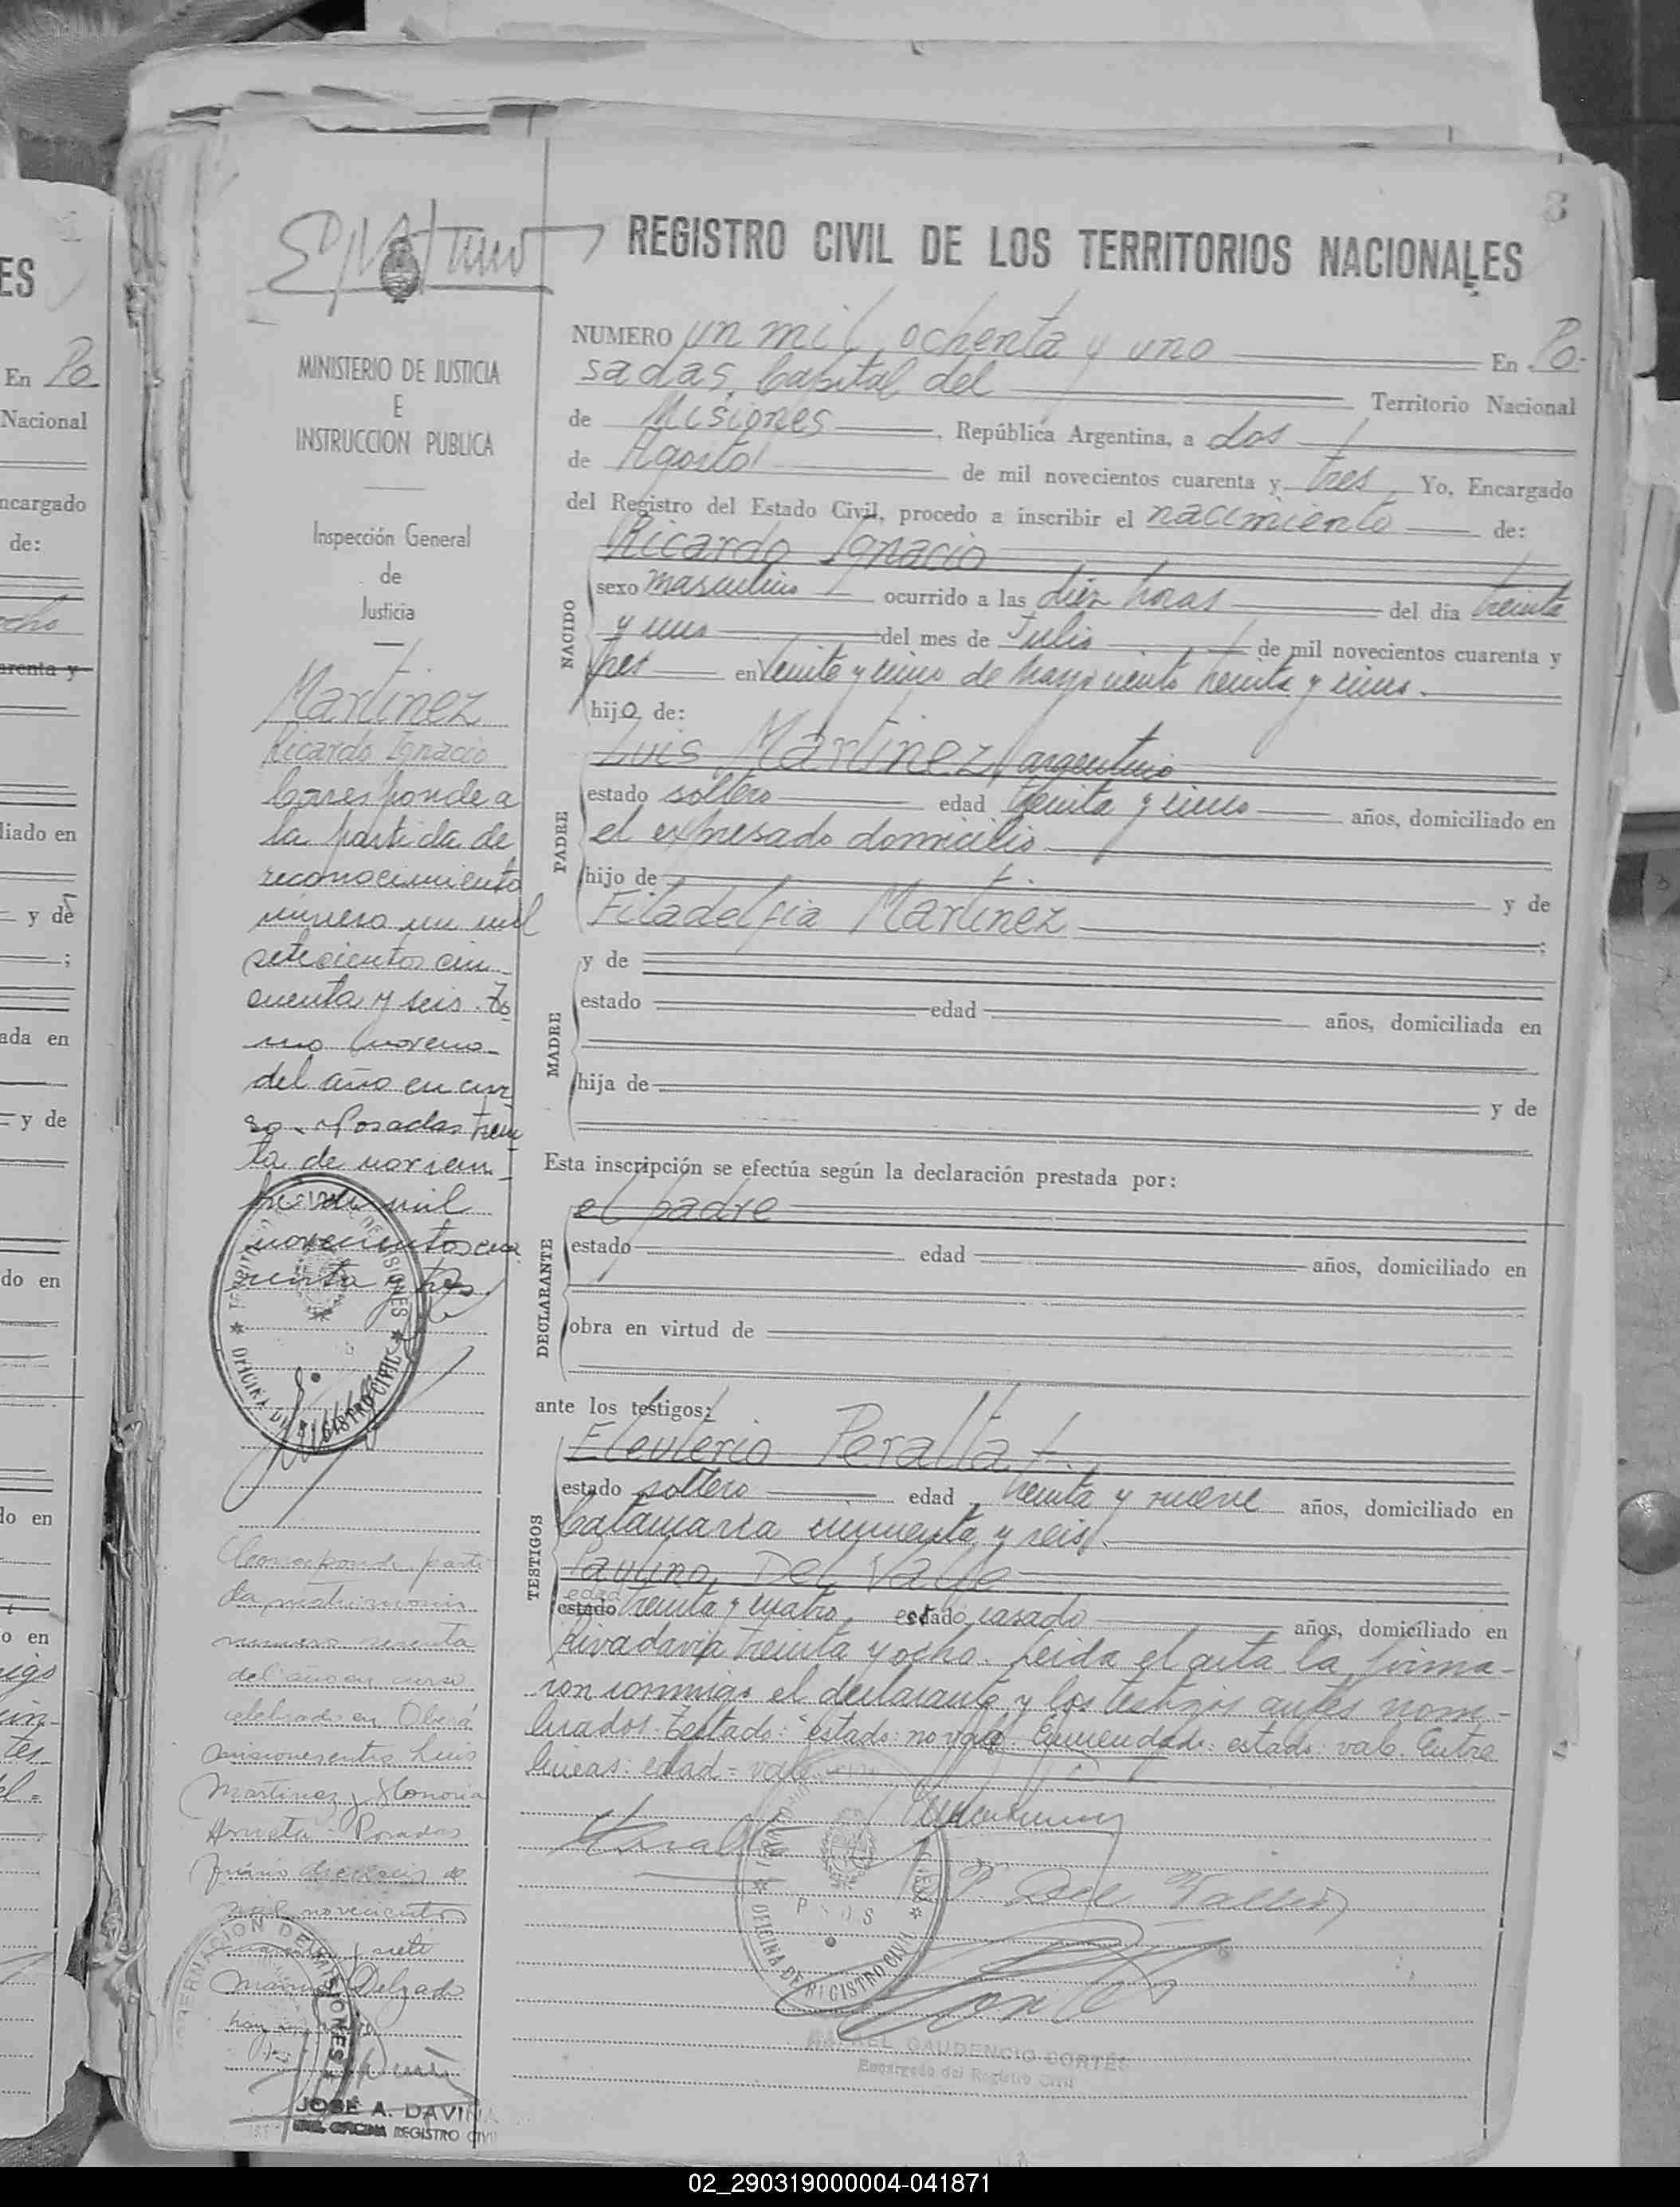 REGISTRO CIVIL DE LOS TERRITORIOS NACIONALES
NUMERO un mil ochenta y uno En Po-
sadas, Capital del Territorio Nacional
de Misiones, República Argentina, a dos
de Agosto de mil novecientos cuarenta y tres Yo, Encargado
del Registro del Estado Civil, procedo a inscribir el nacimiento de:
NACIDO
Ricardo Ignacio
sexo masculino ocurrido a las diez horas del día treinta
y uno del mes de Julio de mil novecientos cuarenta y
tres en Veinte y cinco de Mayo ciento treinta y cinco.
hijo de:
PADRE
Luis Martinez, argentino
estado soltero edad treinta y cinco años, domiciliado en
el expresado domicilio
hijo de y de
Filadelfia Martinez ;
MADRE
y de
estado edad años, domiciliada en
hija de y de
Esta inscripción se efectúa según la declaración prestada por:
DECLARANTE
el padre
estado edad años, domiciliado en
obra en virtud de
ante los testigos:
TESTIGOS
Eleuterio Peralta
estado soltero edad, treinta y nueve años, domiciliado en
Catamarca cincuenta y seis.
Paulino Del Valle
edad
estado treinta y cuatro, estado casado años, domiciliado en
Rivadavia treinta y ocho. Leida el acta la firma-
ron conmigo el declarante y los testigos antes nom-
brados. Testado: "estado: no vale. Enmendado: estado: vale. Entre
lineas: edad = vale
P. Del Valle
OFICINA DE REGISTRO CIVIL
RAFAEL GAUDENCIO CORTÉS
Encargado del Registro Civil
MINISTERIO DE JUSTICIA
E
INSTRUCCION PUBLICA
Inspección General
de
Justicia
Martinez
Ricardo Ignacio
Corresponde a
la partida de
reconocimiento
número un mil
setecientos cin-
cuenta y seis. To-
mo noveno
del año en cur-
so. Posadas trein-
ta de noviem-
bre de mil
novecientos cua-
renta y tres.
OFICINA DE REGISTRO CIVIL
Corresponde parti-
da matrimonio
numero sesenta
del año en curso
celebrado en Oberá
Misiones entre Luis
Martinez y Honoria
Arrieta. Posadas
Junio dieciseis de
mil novecientos
cuarenta y siete
Delgado
GOBERNACION DE MISIONES
JOSÉ A. DAVIÑA
OFICINA REGISTRO CIVIL
ES
En Po
Nacional
ncargado
de:
ocho
arenta y
liado en
y de
;
ada en
y de
do en
do en
o en
02_290319000004-041871